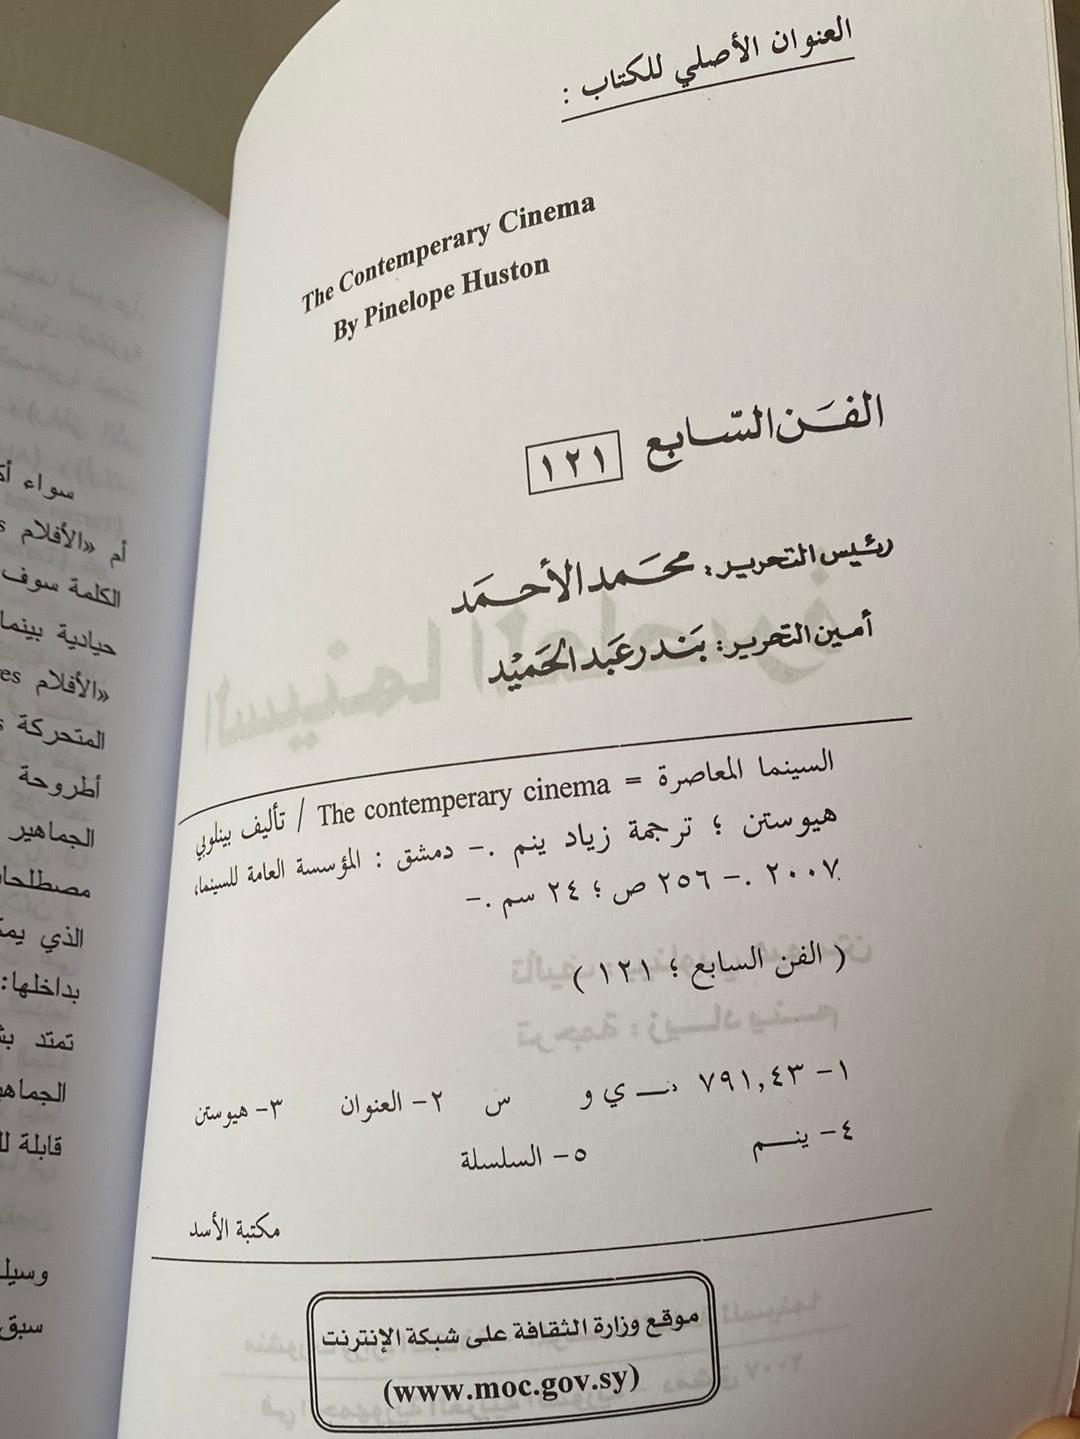 العنوان الأصلي للكتاب :
The Contemperary Cinema
By Pinelope Huston
الفن السّابع ١٢١
رئيس التحرير: محمد الأحمد
أمين التحرير: بندر عبد الحميد
السينما المعاصرة = The contemperary cinema / تأليف بينلوبي
هيوستن ؛ ترجمة زياد ينم .- دمشق : المؤسسة العامة للسينما،
٢٠٠٧ .- ٢٥٦ ص ؛ ٢٤ سم .-
( الفن السابع ؛ ١٢١ )
١- ٧٩١,٤٣ ي و س ٢- العنوان ٣- هيوستن
٤- ينم ٥- السلسلة
مكتبة الأسد
موقع وزارة الثقافة على شبكة الإنترنت
(www.moc.gov.sy)
سواء
أم «الأفلام
الكلمة سوف
حيادية بينما
«الأفلام
المتحركة
أطروحة
الجماهير
الذي
بداخلها:
تمتد
قابلة
سبق